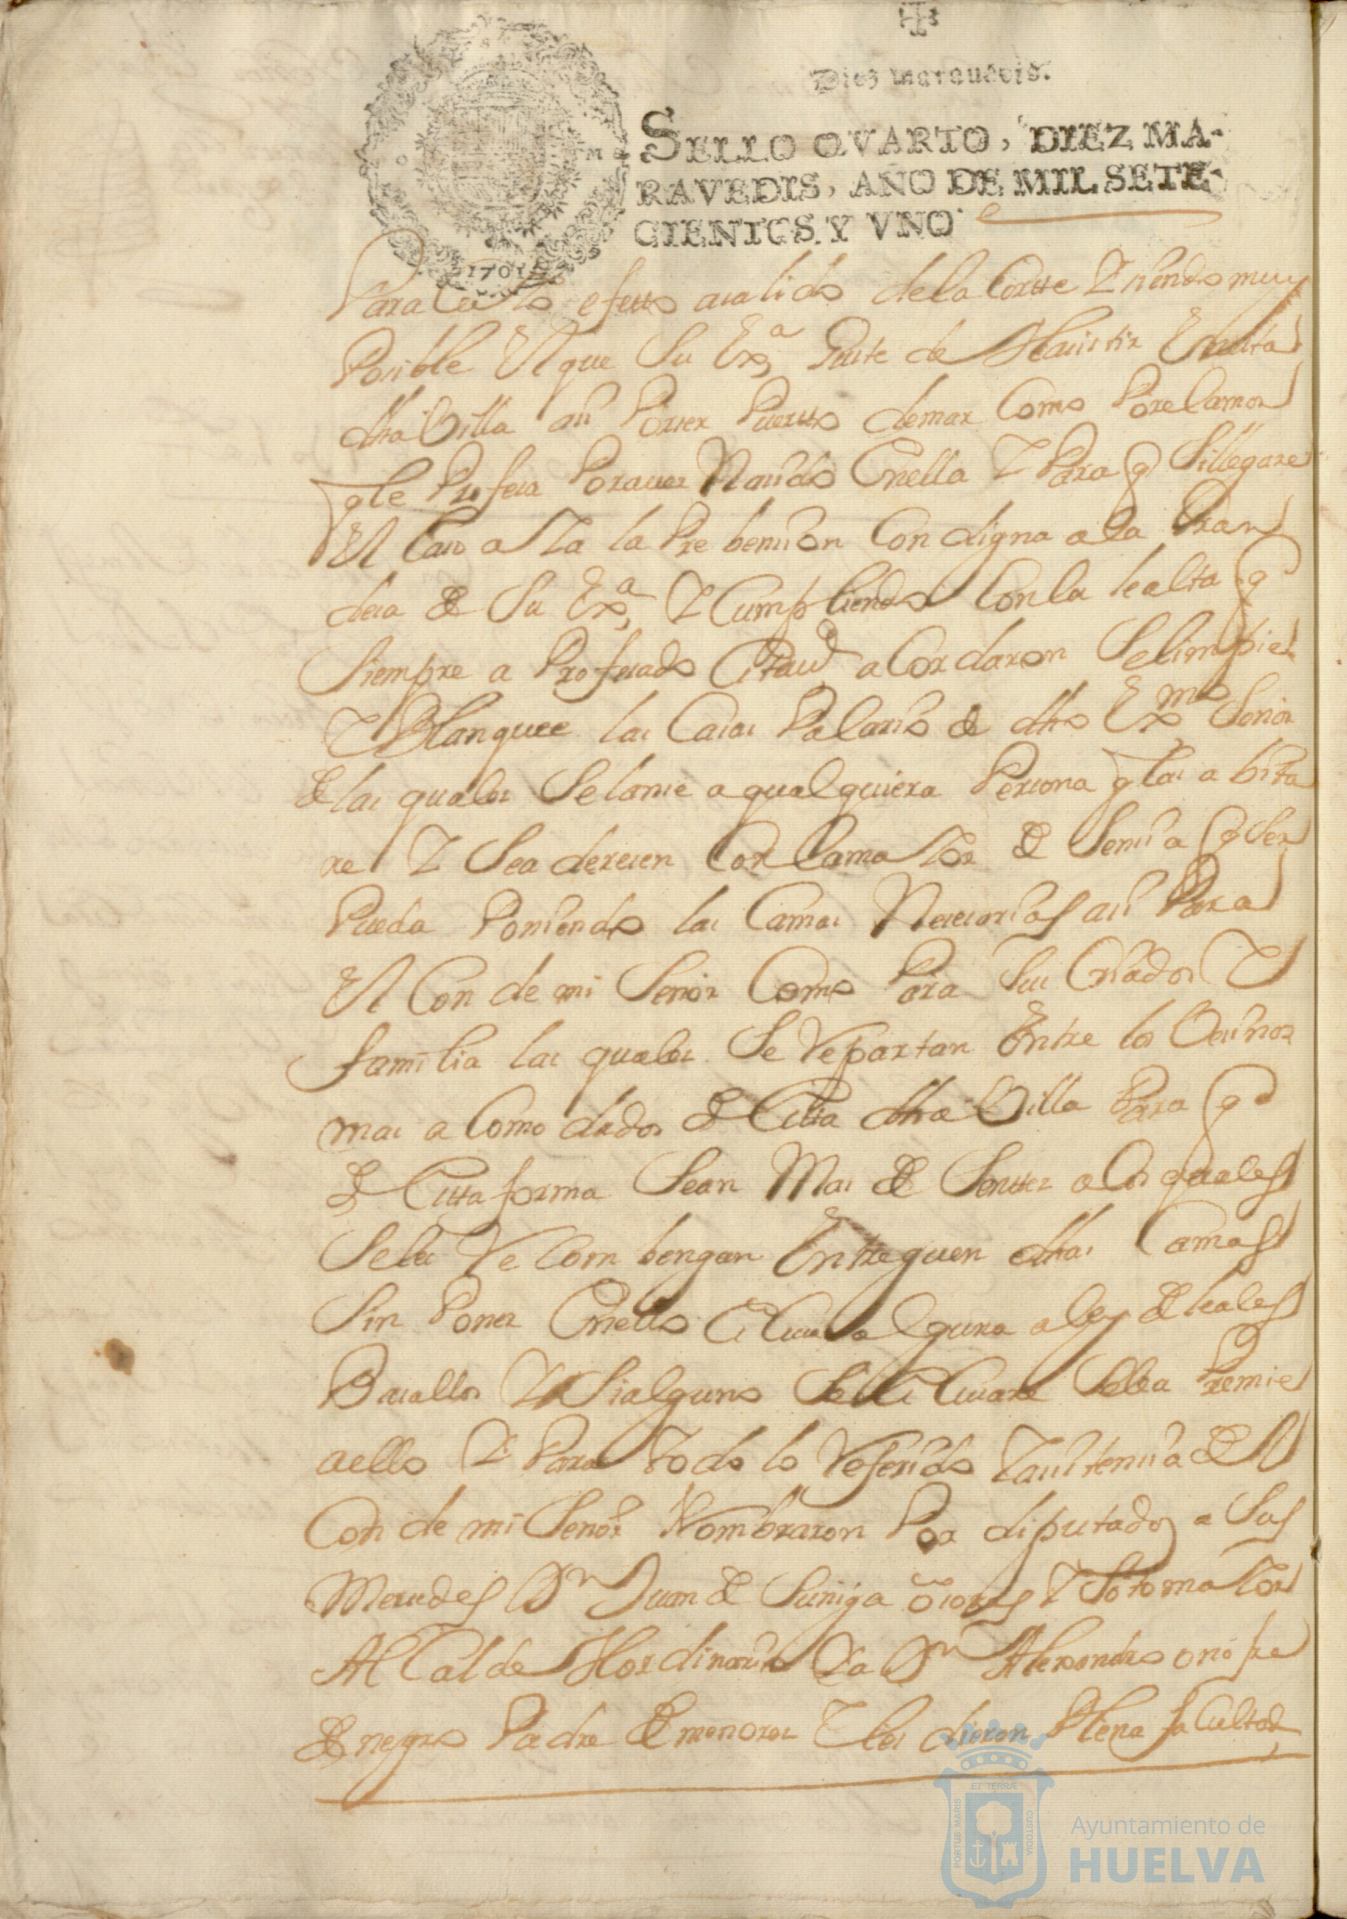 Diez marauedis.
SELLO QVARTO, DIEZ MA-
RAVEDIS, AÑO DE MIL SETE-
CIENTOS Y VNO
1701
Para efetto a salido de la Cortte Y siendo muy
Posible El que Su Exa Guste de Haistir En esta
dha Villa asi Por ser Puertto de mar Como Por el amor
q le Profesa Por auer Nasido En ella Y Para q Si llegare
El Caso aLla la Prebension Condigna a la Gran
desa de Su Exa Y Cumpliendo Con la lealta q
Siempre a Profesado Esta Vd aCordaron Se limpien
Y Blanqueen las Casas Palasio de dho Exmo Señor
de las quales Se lanse a qualquiera Persona q las abita
re Y Se aderesen Con la maLor desensia q Ser
Pueda Poniendo las Camas Nesesarias asi Para
El Conde mi Señor Como Para Sus Criados Y
familia las quales Se Repartan Entre los Vesinos
mas aComodados de Esta dha Villa Para q
de Esta forma Sean Mas desentes a los quales
Se les ReConbengan Entreguen dhas Camas
Sin Poner En ello EsCusa alguna a ley de leales
Basallos Y Si alguno Se esCusare Se le aPremie
a ello Y Para todo lo Referido Y asistensia del
Conde mi Señor Nombraron Por diputados a Sus
Mersedes Dn Juan de Suniga Y SotomaLor
AlCalde Hordinario Y a Dn Alexandro onofre
de negro Padre de menores Y les dieron Plena faCultad
PORTUS MARIS
ET TERRÆ
CUSTODIA
Ayuntamiento de
HUELVA